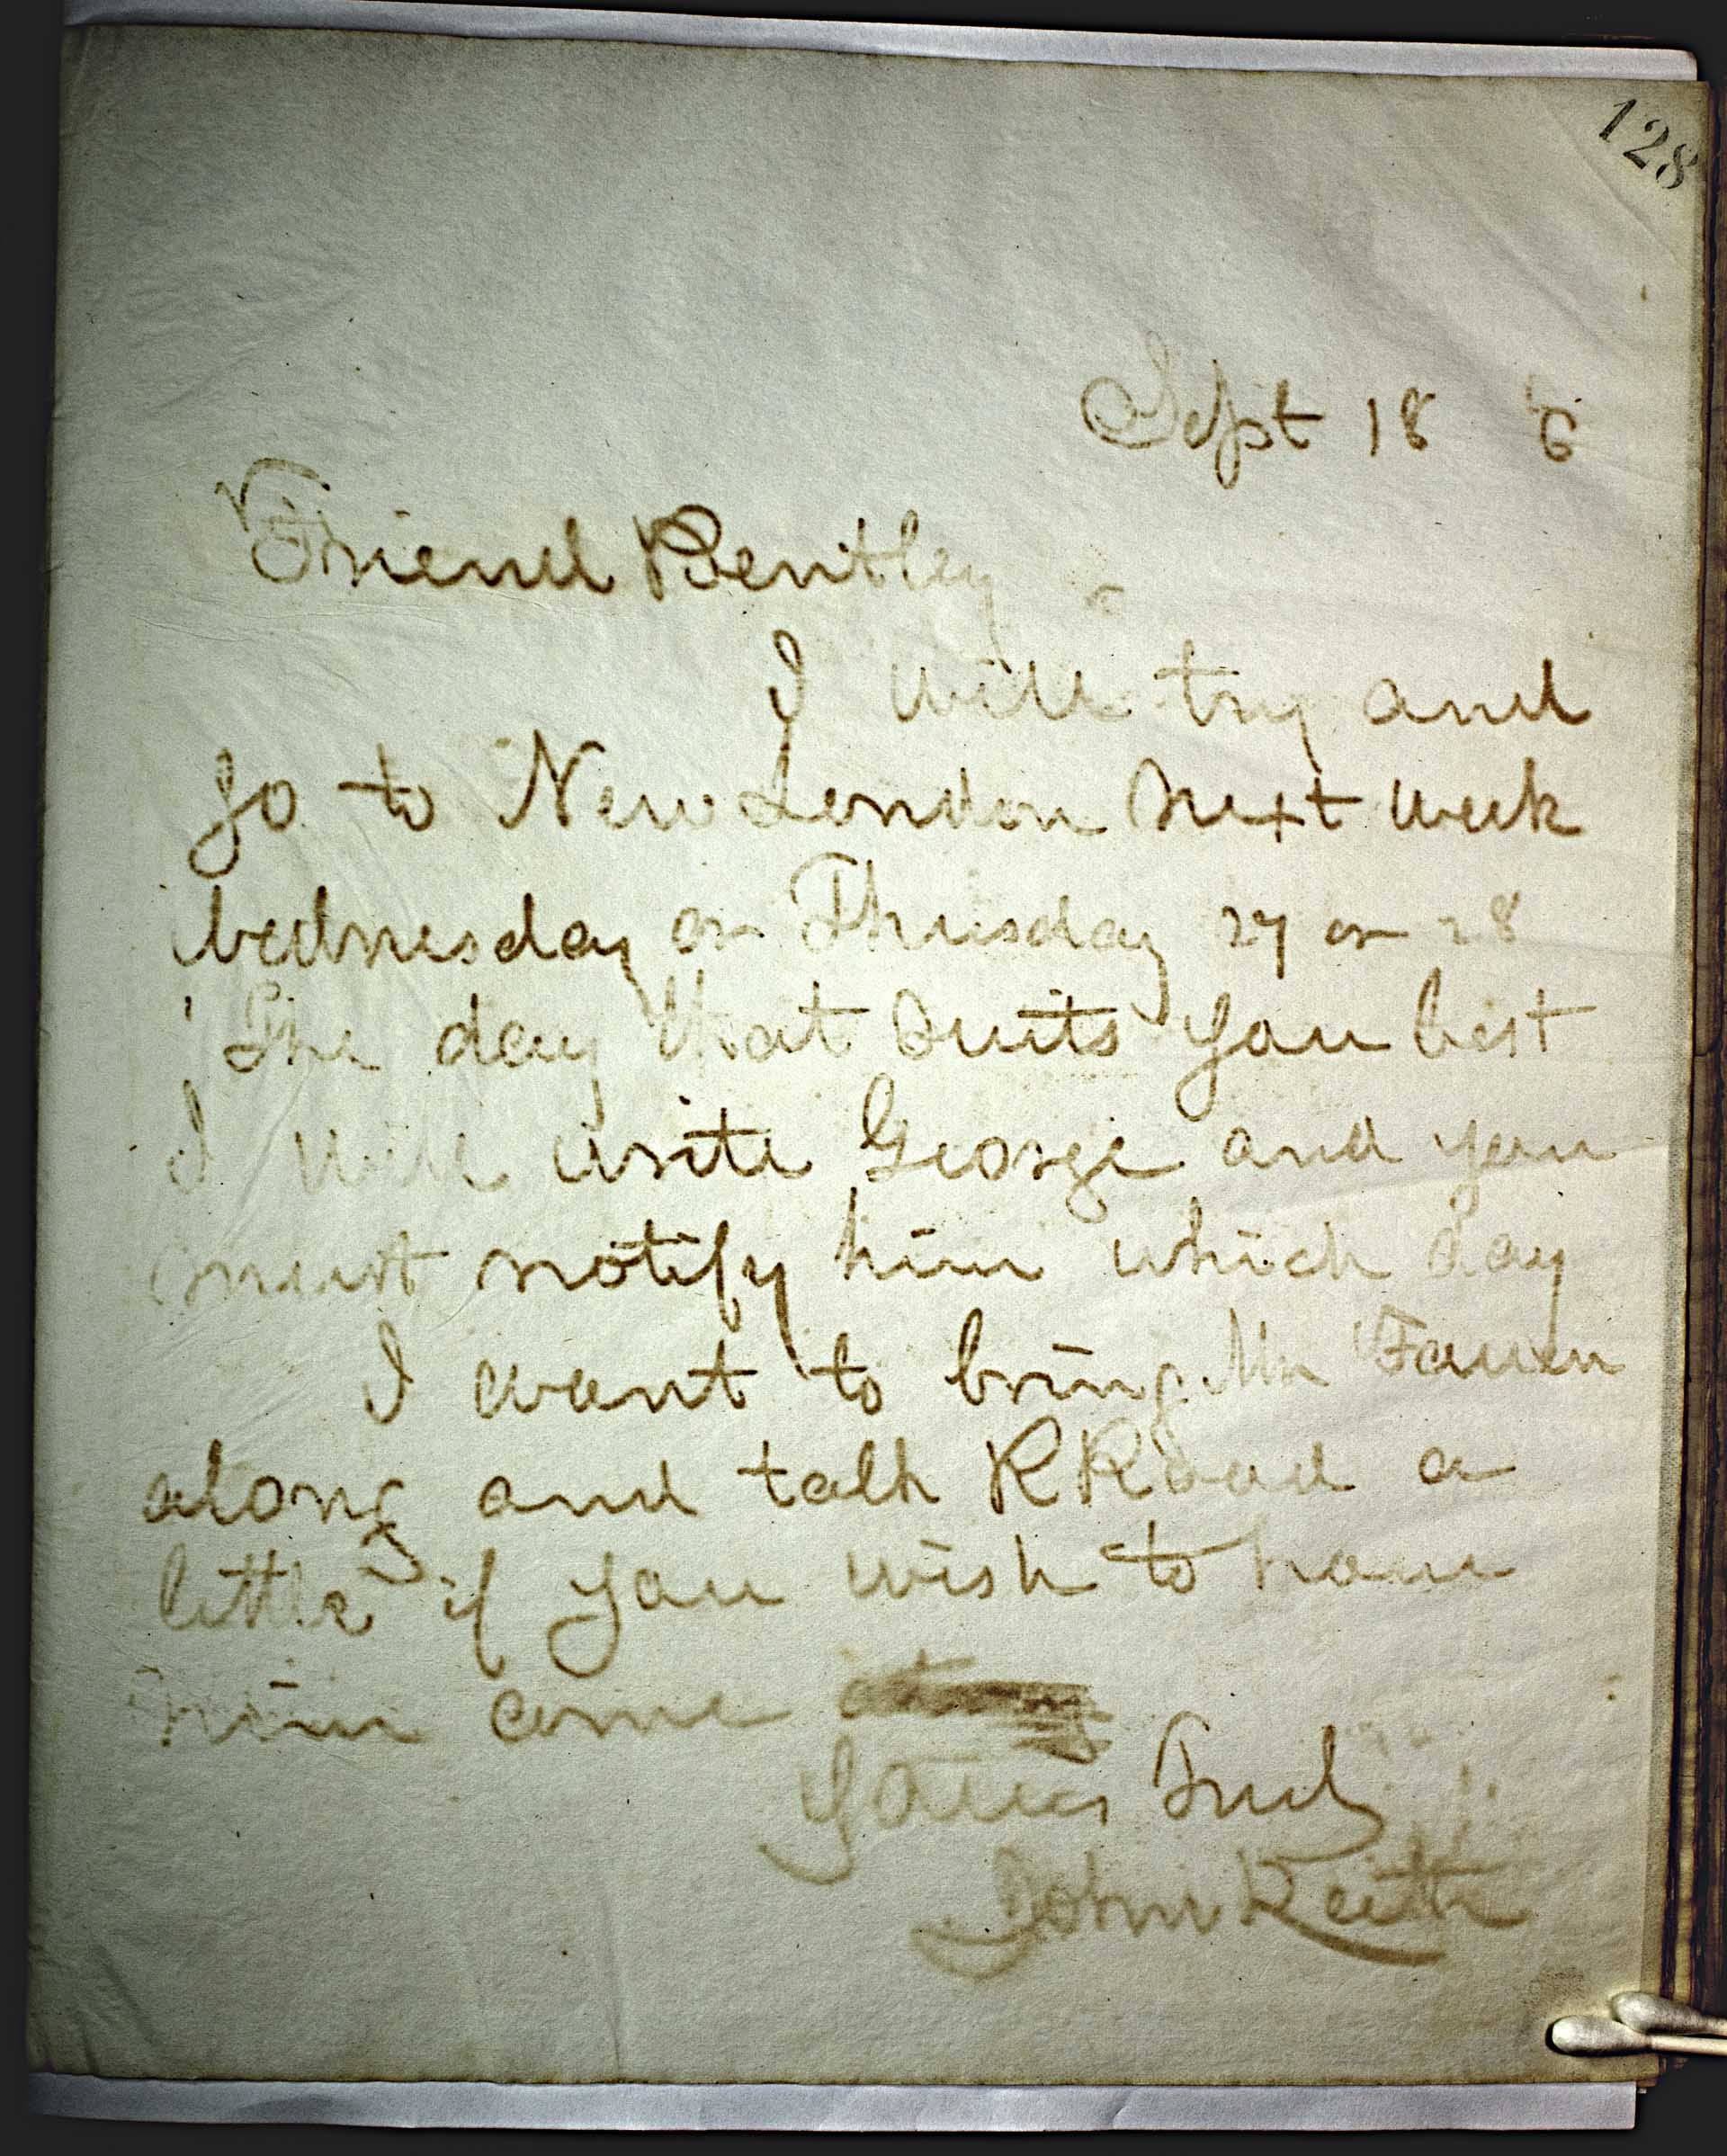 128
Sept 18 6
Friend Bentley
I will try and
go to New London next week
Wednesday or Thusday 27 or 28
The day that suits you best
I will write George and you
must notify him which day
I want to bring Mr
along and talk R Road a
little if you wish to have
him come
Yours Truly
John Keith